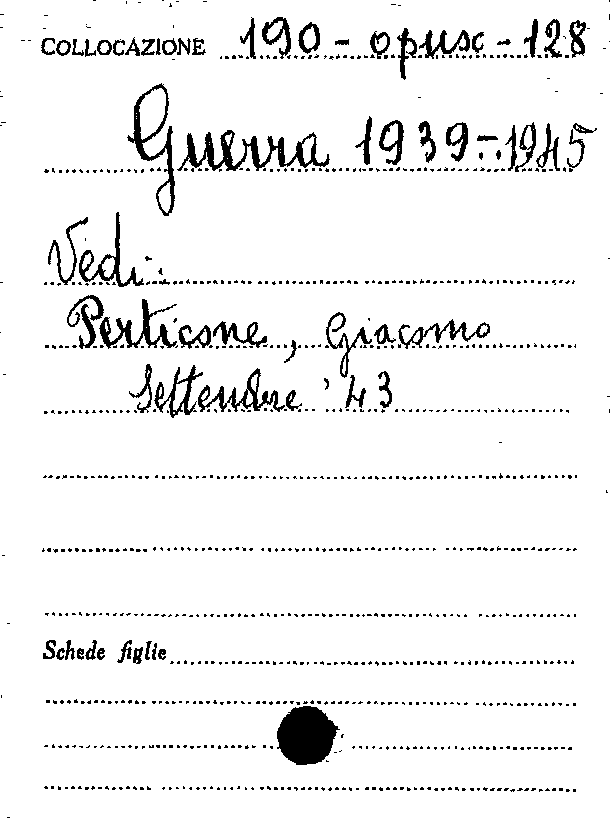 COLLOCAZIONE 190 - opusc - 128
Guerra 1939-1945
Vedi:
Perticone, Giacomo
Settembre '43
Schede figlie